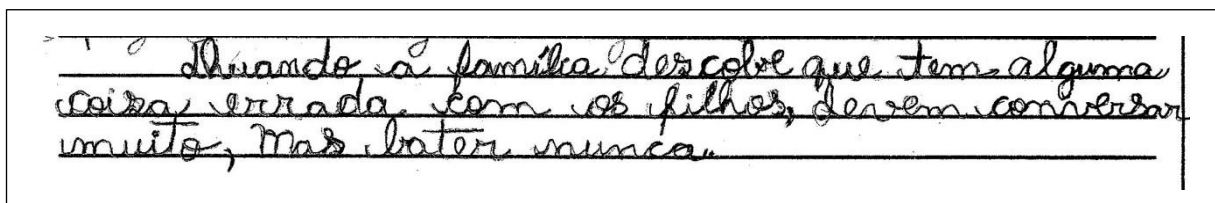 Quando, a família descobre que tem alguma
coisa errada com os filhos, devem conversar
muito, mas bater nunca.